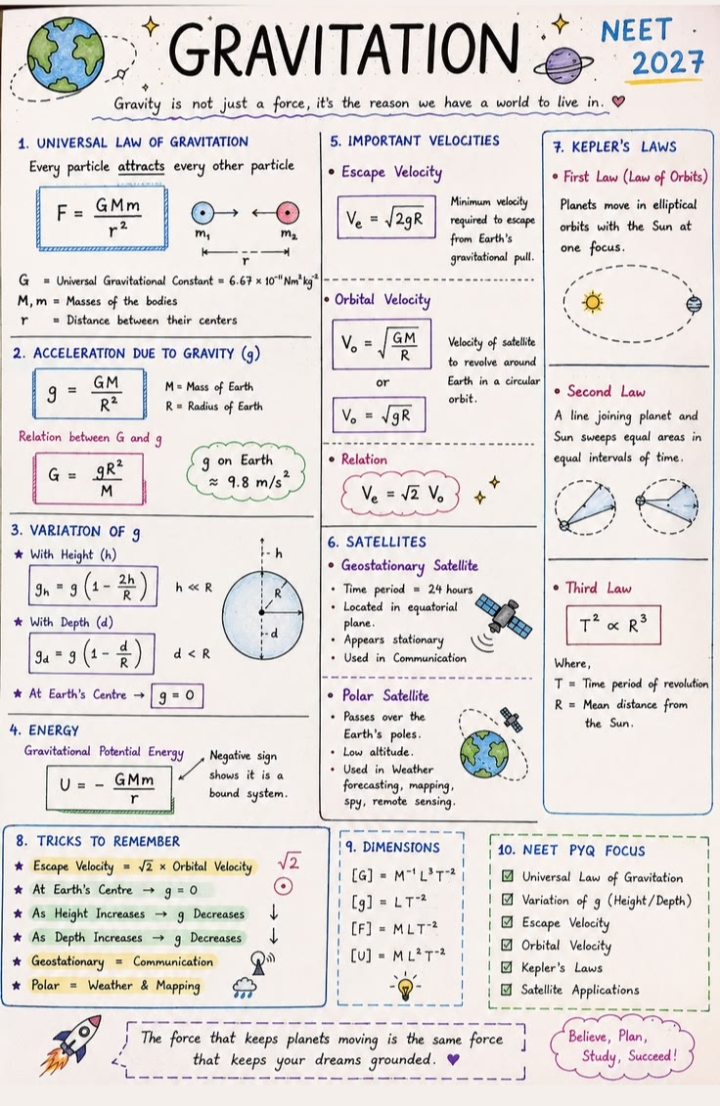 GRAVITATION
NEET
2027
Gravity is not just a force, it's the reason we have a world to live in.
1. UNIVERSAL LAW OF GRAVITATION
Every particle attracts every other particle
F = GMm / r²
m₁
m₂
r
G = Universal Gravitational Constant = 6.67 × 10⁻¹¹ Nm²kg⁻²
M, m = Masses of the bodies
r = Distance between their centers
2. ACCELERATION DUE TO GRAVITY (g)
g = GM / R²
M = Mass of Earth
R = Radius of Earth
Relation between G and g
G = gR² / M
g on Earth
≈ 9.8 m/s²
3. VARIATION OF g
★ With Height (h)
gₕ = g (1 - 2h/R)
h << R
★ With Depth (d)
g_d = g (1 - d/R)
d < R
h
R
d
★ At Earth's Centre → g = 0
4. ENERGY
Gravitational Potential Energy
U = - GMm / r
Negative sign
shows it is a
bound system.
5. IMPORTANT VELOCITIES
• Escape Velocity
Vₑ = √2gR
Minimum velocity
required to escape
from Earth's
gravitational pull.
• Orbital Velocity
Vₒ = √GM/R
or
Vₒ = √gR
Velocity of satellite
to revolve around
Earth in a circular
orbit.
• Relation
Vₑ = √2 Vₒ
6. SATELLITES
• Geostationary Satellite
• Time period = 24 hours
• Located in equatorial
plane.
• Appears stationary
• Used in Communication
• Polar Satellite
• Passes over the
Earth's poles.
• Low altitude.
• Used in Weather
forecasting, mapping,
spy, remote sensing.
7. KEPLER'S LAWS
• First Law (Law of Orbits)
Planets move in elliptical
orbits with the Sun at
one focus.
• Second Law
A line joining planet and
Sun sweeps equal areas in
equal intervals of time.
• Third Law
T² ∝ R³
Where,
T = Time period of revolution
R = Mean distance from
the Sun.
8. TRICKS TO REMEMBER
★ Escape Velocity = √2 × Orbital Velocity
√2
★ At Earth's Centre → g = 0
★ As Height Increases → g Decreases ↓
★ As Depth Increases → g Decreases ↓
★ Geostationary = Communication
★ Polar = Weather & Mapping
9. DIMENSIONS
[G] = M⁻¹ L³ T⁻²
[g] = L T⁻²
[F] = M L T⁻²
[U] = M L² T⁻²
10. NEET PYQ FOCUS
☑ Universal Law of Gravitation
☑ Variation of g (Height/Depth)
☑ Escape Velocity
☑ Orbital Velocity
☑ Kepler's Laws
☑ Satellite Applications
The force that keeps planets moving is the same force
that keeps your dreams grounded.
Believe, Plan,
Study, Succeed!